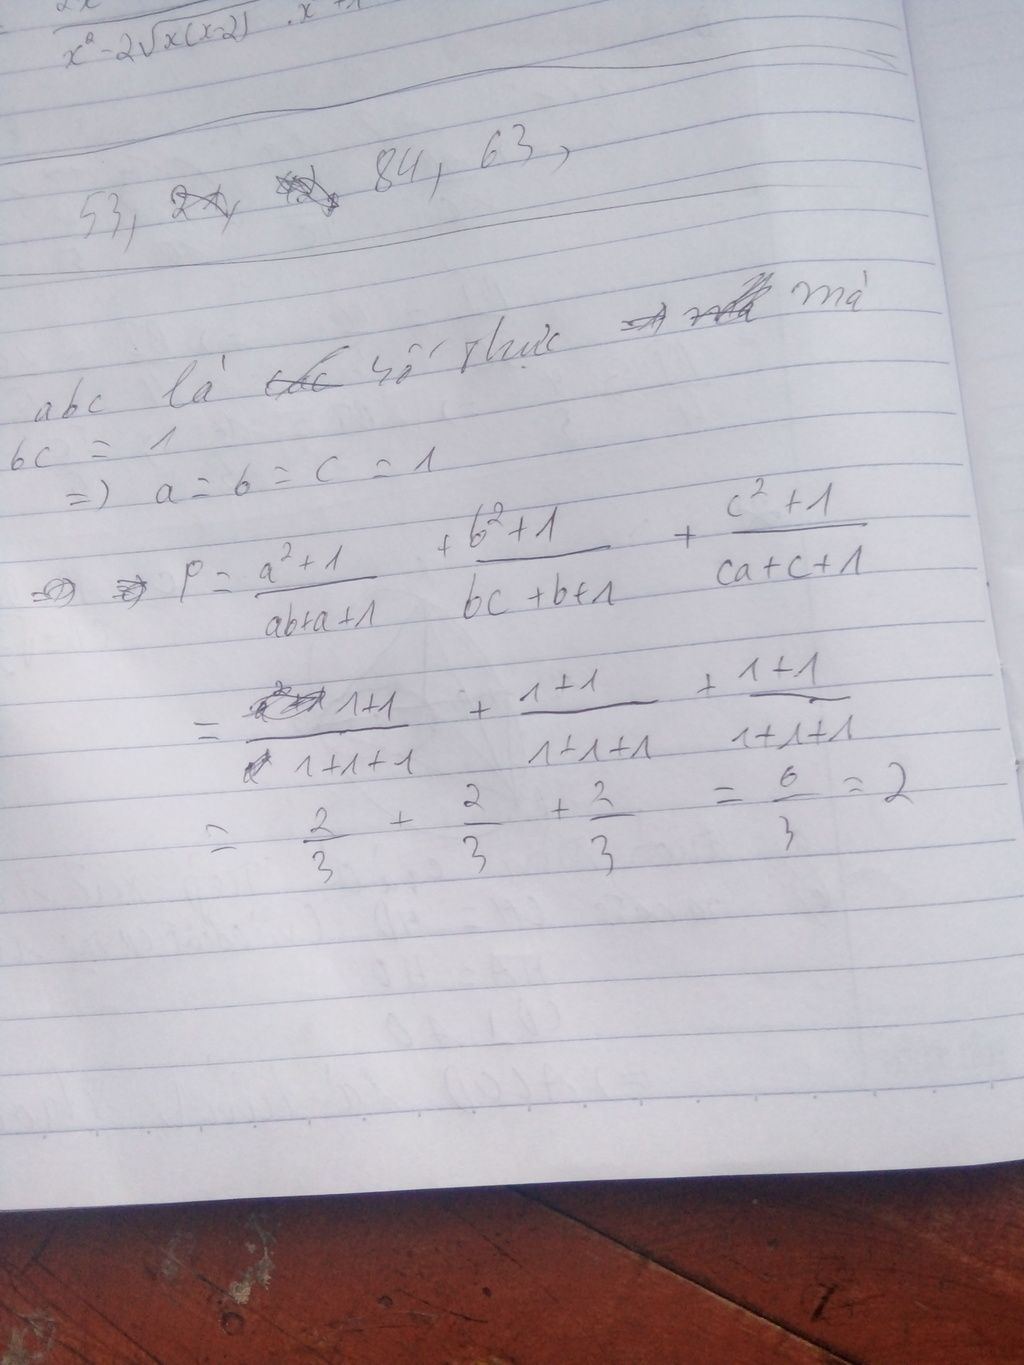 2x
x² - 2√x(x-2) . x + 1
53, 21, 84, 63,
abc là các số thực => mà mà
bc = 1
=> a = b = c = 1
=> => P = a²+1 / ab+a+1 + b²+1 / bc+b+1 + c²+1 / ca+c+1
= 1+1 / 1+1+1 + 1+1 / 1+1+1 + 1+1 / 1+1+1
= 2/3 + 2/3 + 2/3 = 6/3 = 2